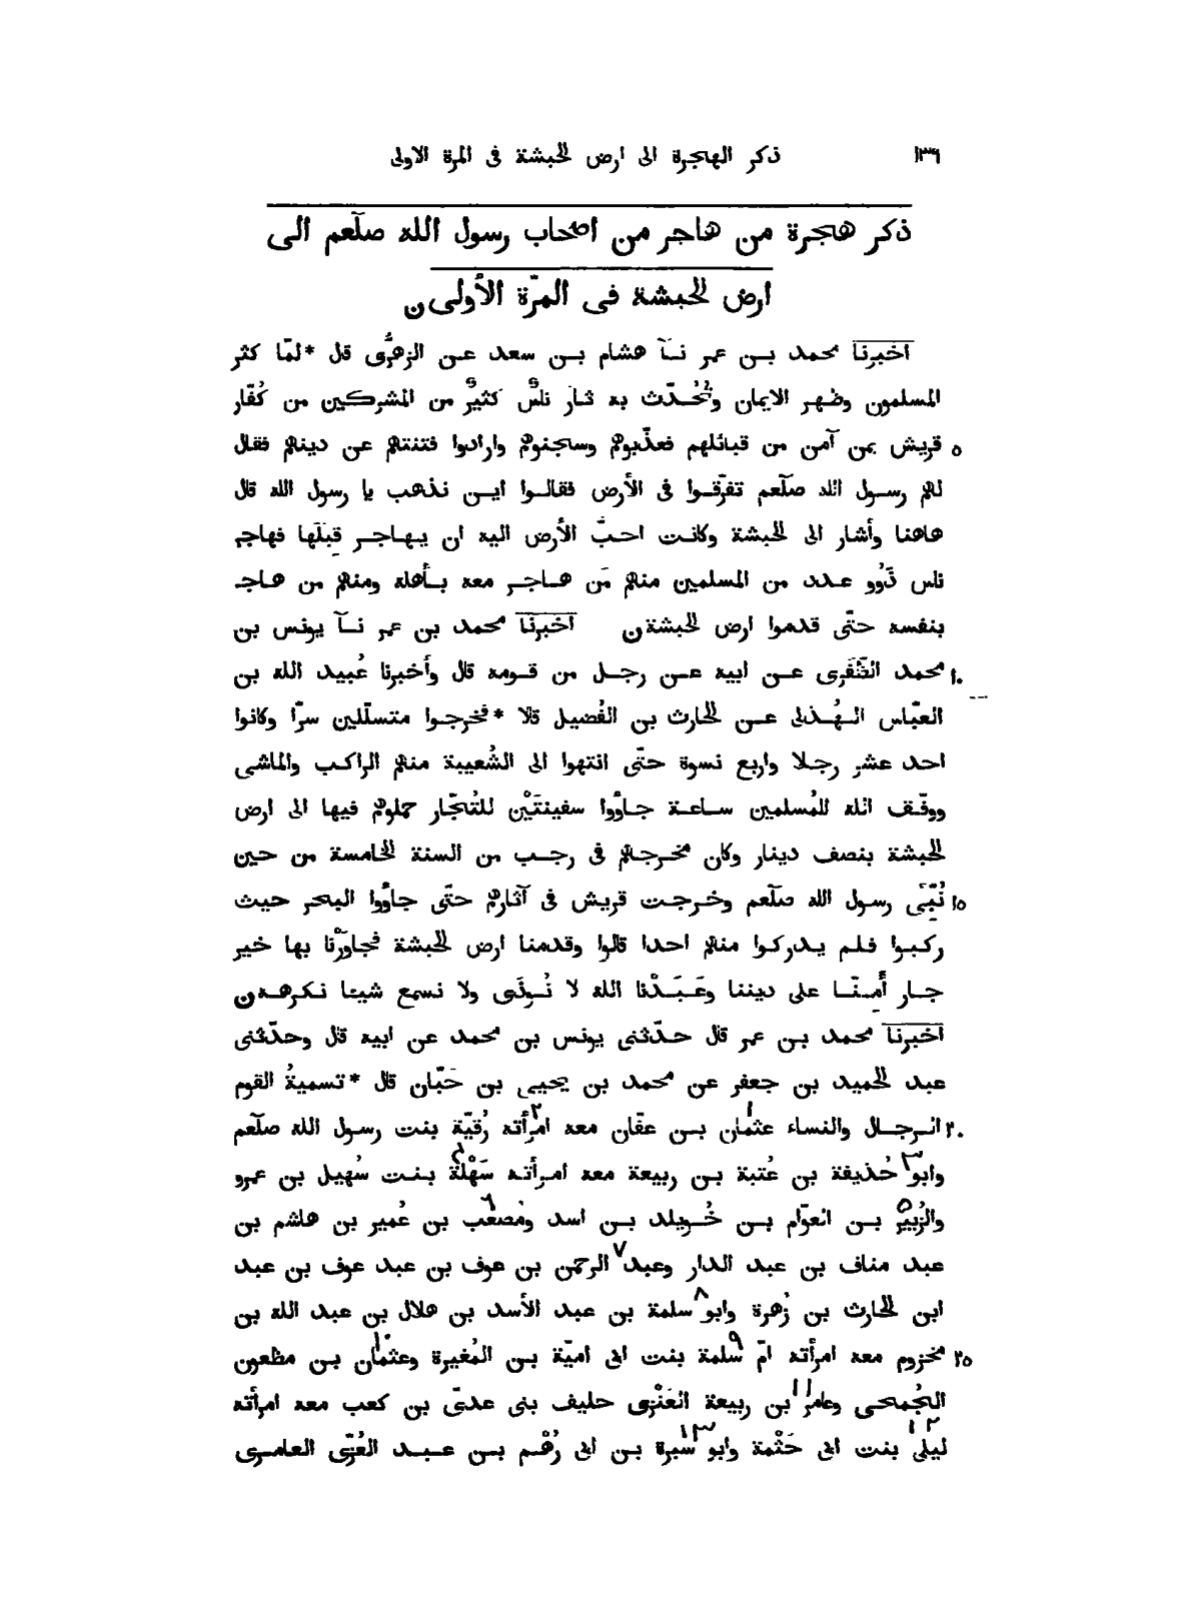 ١٣٦ ذكر الهجرة الى ارض الحبشة فى المرة الاولى
ذكر هجرة من هاجر من اصحاب رسول الله صلّعم الى
ارض الحبشة فى المرّة الأولى ن
اخبرنا محمد بن عمر نا هشام بن سعد عن الزهرى قال *لمّا كثر
المسلمون وظهر الايمان وتُحُدّث به ثار ناسٌ كثيرٌ من المشركين من كُفّار
٥ قريش بمن آمن من قبائلهم فعذّبوهم وسجنوهم وارادوا فتنتهم عن دينهم فقال
لهم رسول الله صلّعم تفرّقوا فى الأرض فقالوا اين نذهب يا رسول الله قال
هاهنا وأشار الى الحبشة وكانت احبّ الأرض اليه ان يهاجر قِبَلَها فهاجر
ناس ذَوُو عدد من المسلمين منهم مَن هاجر معه بأهله ومنهم من هاجر
بنفسه حتّى قدموا ارض الحبشة ن اخبرنا محمد بن عمر نا يونس بن
١٠ محمد الظَّفَرى عن ابيه عن رجل من قومه قال وأخبرنا عُبيد الله بن
العبّاس الهُذلى عن الحارث بن الفُضيل قالا *فخرجوا متسلّلين سرّا وكانوا
احد عشر رجلا واربع نسوة حتّى انتهوا الى الشُعيبة منهم الراكب والماشى
ووفّق الله للمُسلمين ساعة جاؤوا سفينتَيْن للتُجّار حملوهم فيها الى ارض
الحبشة بنصف دينار وكان مخرجهم فى رجب من السنة الخامسة من حين
١٥ نُبّئَ رسول الله صلّعم وخرجت قريش فى آثارهم حتّى جاؤوا البحر حيث
ركبوا فلم يدركوا منهم احدا قالوا وقدمنا ارض الحبشة فجاوَرْنا بها خير
جار أَمِنّا على ديننا وعَبَدْنا الله لا نُوذَى ولا نسمع شيئا نكرهه ن
اخبرنا محمد بن عمر قال حدّثنى يونس بن محمد عن ابيه قال وحدّثنى
عبد الحميد بن جعفر عن محمد بن يحيى بن حَبّان قال *تسميةُ القوم
٢٠ الرجال والنساء عثمان١ بن عفّان معه امرأته٢ رُقيّة بنت رسول الله صلّعم
وابو٣ حُذيفة بن عُتبة بن ربيعة معه امرأته سَهْلة٤ بنت سُهيل بن عمرو
والزُبير٥ بن العوّام بن خُويلد بن اسد ومُصعَب٦ بن عُمير بن هاشم بن
عبد مناف بن عبد الدار وعبد٧ الرحمن بن عوف بن عبد عوف بن عبد
ابن الحارث بن زُهرة وابو٨ سلمة بن عبد الأسد بن هلال بن عبد الله بن
٢٥ مخزوم معه امرأته امّ سلمة٩ بنت ابى اميّة بن المُغيرة وعثمان١٠ بن مظعون
الجُمحى وعامر١١ بن ربيعة العَنْزى حليف بنى عدىّ بن كعب معه امرأته
ليلى١٢ بنت ابى حَثْمة وابو١٣ سبرة بن ابى رُهْم بن عبد العُزّى العامرى